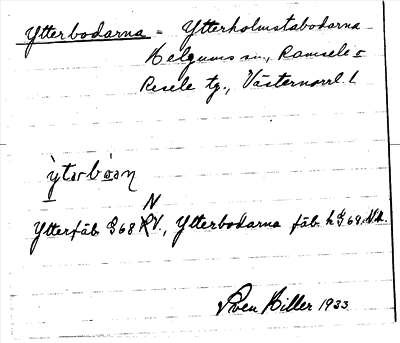 Ytterbodarna = Ytterholmstabodarna
Helgums sn., Ramsele o
Resele tg., Västernorrl. l
ỳtərbⱥən
N
Ytterfäb. G68 RV., Ytterbodarna fäb. h G69 NA.
Sven Hiller 1933